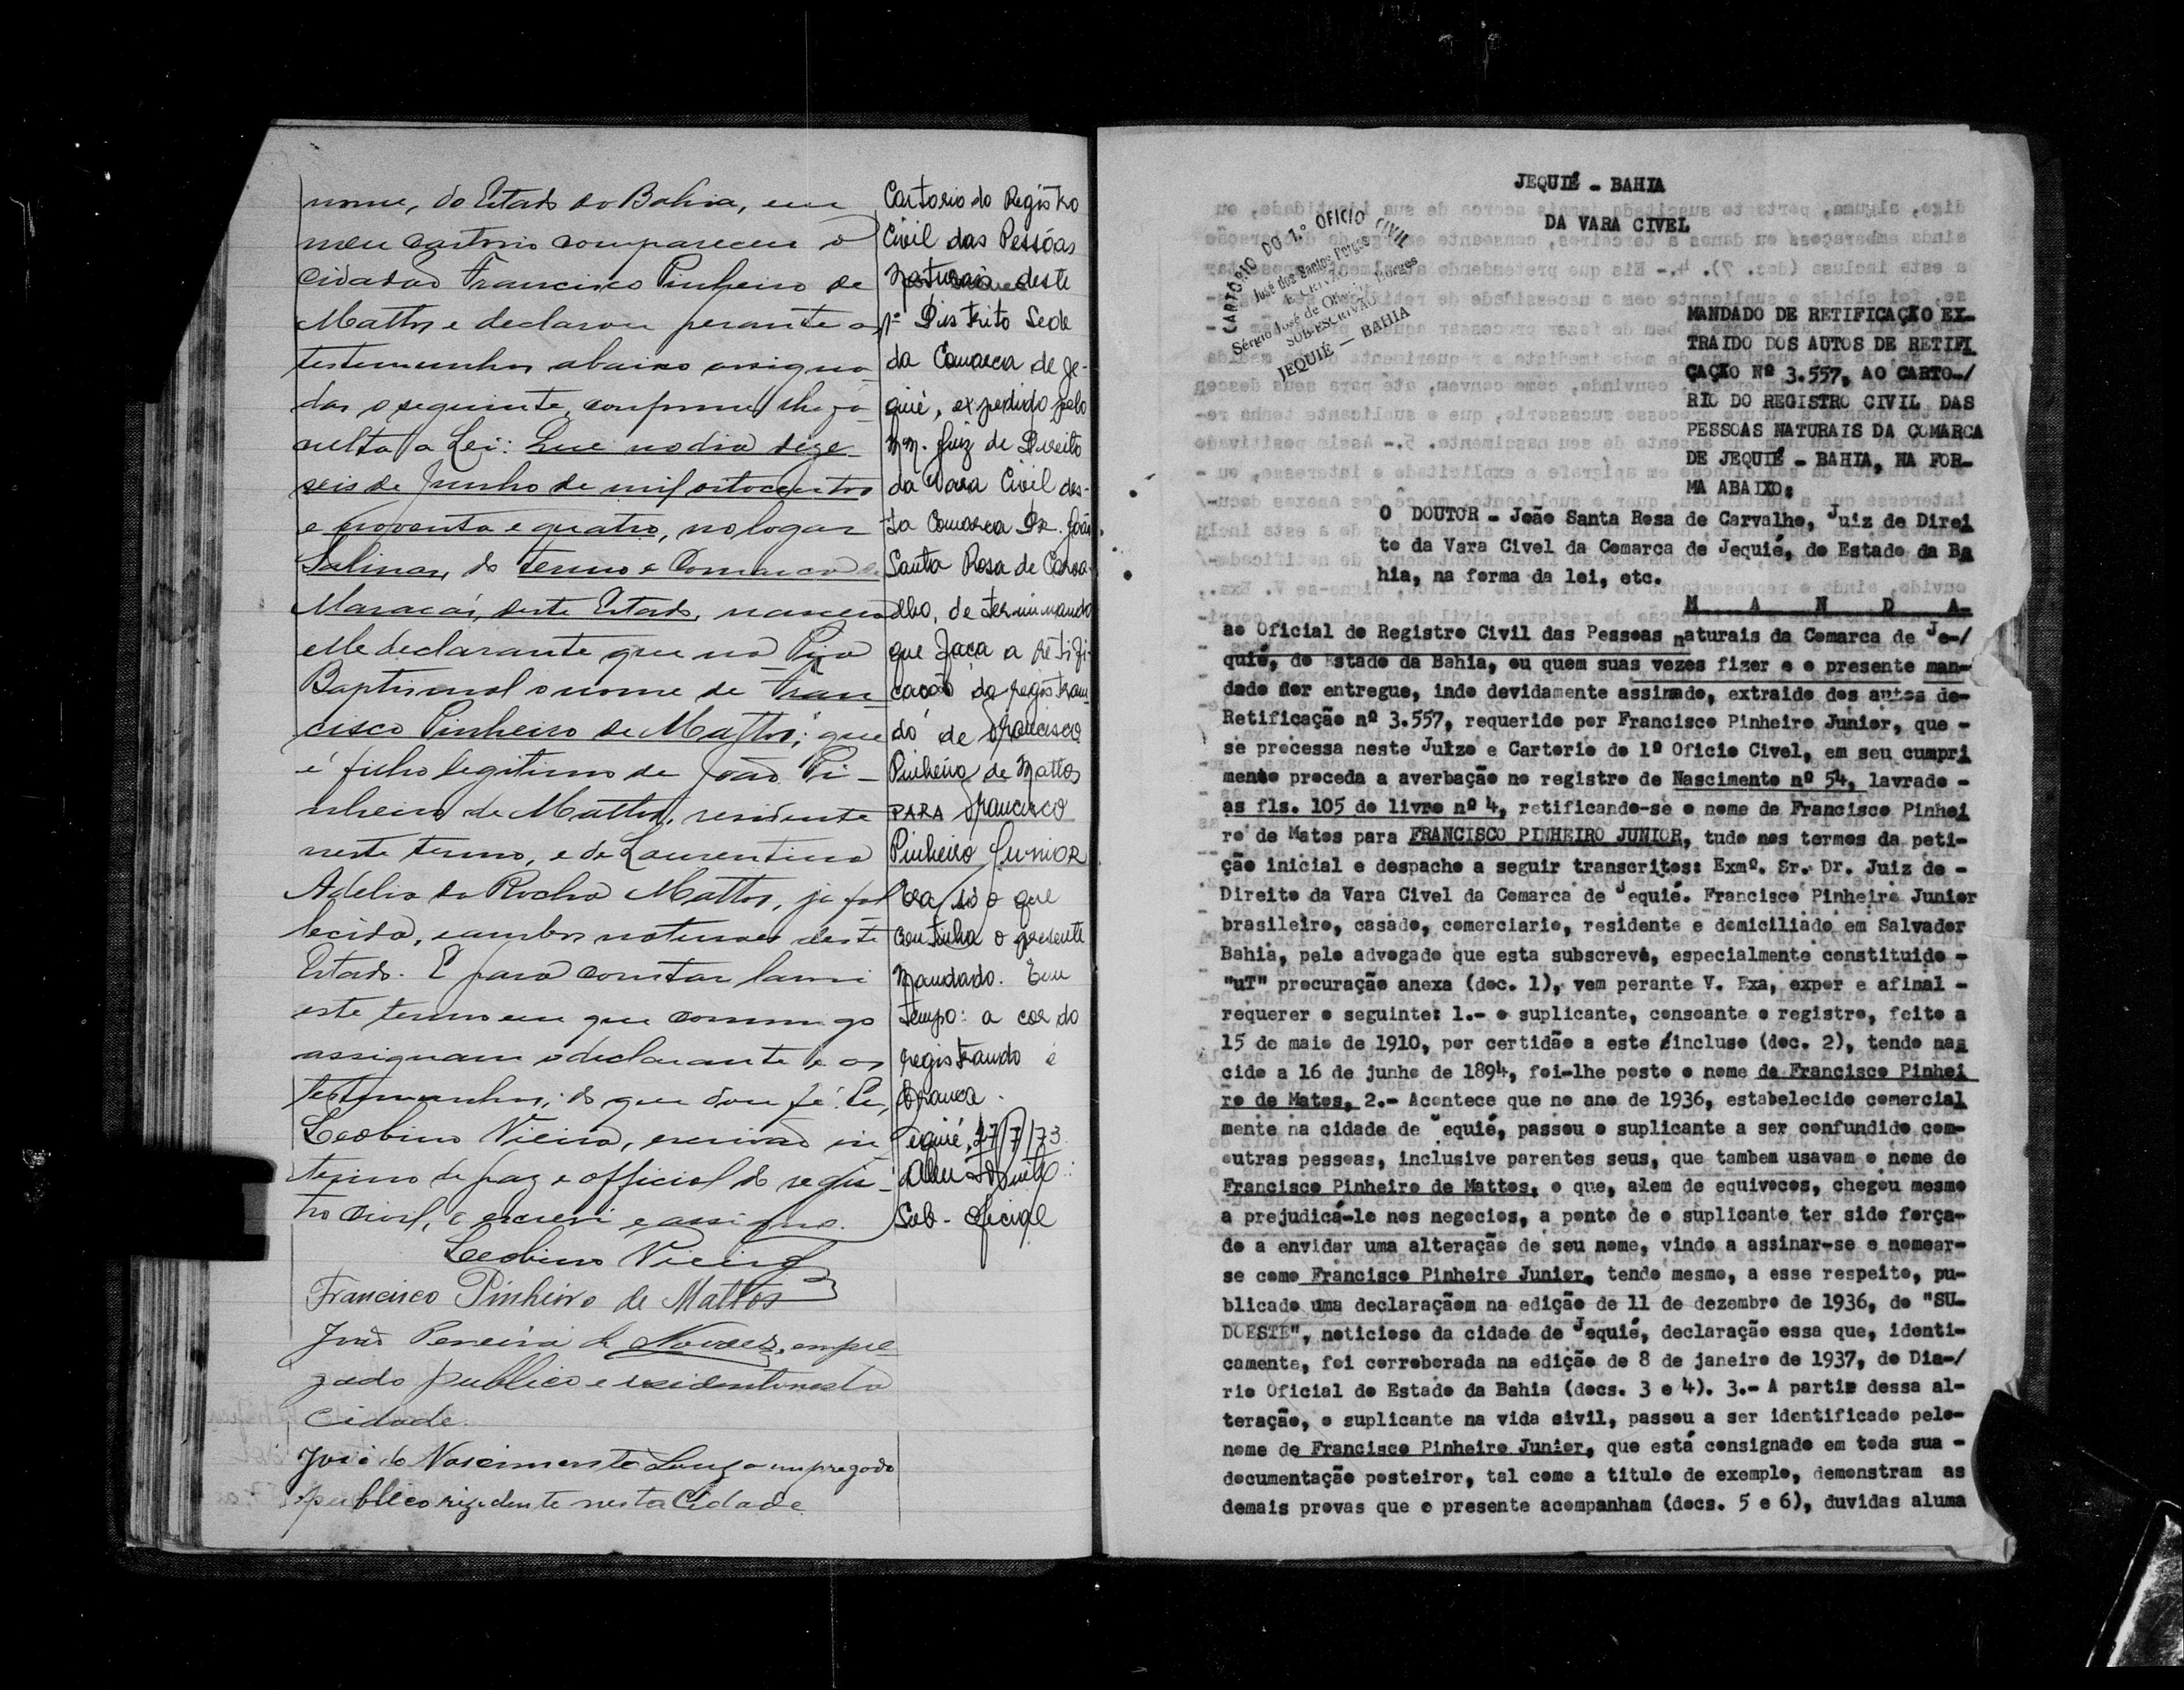 nome, do Estado da Bahia, em
meu cartorio compareceu o
cidadão Francisco Pinheiro de
Mattos e declarou perante as
testemunhas abaixo assigna
das o seguinte, conforme lhe fa
culta a Lei: Que no dia deze-
seis de Junho de mil oitocentos
e noventa e quatro, no logar
Salinas, do termo e Comarca de
Maracás, deste Estado, nasceu
elle declarante que na Pia
Baptismal o nome de Fran-
cisco Pinheiro de Mattos; que
é filho legitimo de João Pi-
nheiro de Mattos, residente
neste termo, e de Laurentina
Adelia da Rocha Mattos, já fal
lecida, e ambos naturaes deste
Estado. E para constar lavrei
este termo em que commigo
assignam o declarante e as
testemunhas; do que dou fé. Eu,
Leobino Vieira, escrivão in
terino de paz e official do regis-
tro civil, o escrevi e assigno.
Leobino Vieira
Francisco Pinheiro de Mattos
João Pereira de Novaes, empre-
gado publico e residente nesta
Cidade.
José do Nascimento Souza empregado
publico rizidente nesta Cidade
Cartorio do Registro
Civil das Pessôas
Naturais deste
1º Distrito Sede
da Comarca de Je-
quié, expedido pelo
Mm. Juiz de Direito
da Vara Civil des-
ta Comarca Dr. João
Santa Rosa de Carva-
lho, determinando
que faça a retifi-
cação do registran-
do de Francisco
Pinheiro de Mattos
PARA Francisco
Pinheiro Junior
Era só o que
continha o presente
Mandado. Em
tempo: a cor do
registrando é
branca.
Jequié, 27/7/73
Sub-Oficial
JEQUIÉ - BAHIA
DA VARA CIVEL
CARTÓRIO DO 1.º OFICIO CIVIL
José dos Santos Borges
ESCRIVÃO
Sérgio José de Oliveira Borges
SUB-ESCRIVÃO
JEQUIÉ — BAHIA
MANDADO DE RETIFICAÇÃO EX-
TRAIDO DOS AUTOS DE RETIFI
CAÇÃO Nº 3.557, AO CARTO-/
RIO DO REGISTRO CIVIL DAS
PESSOAS NATURAIS DA COMARCA
DE JEQUIÉ - BAHIA, NA FOR-
MA ABAIXO:
O DOUTOR - João Santa Rosa de Carvalho, Juiz de Direi
to da Vara Civel da Comarca de Jequié, do Estado da Ba
hia, na forma da lei, etc.
M A N D A-
ao Oficial do Registro Civil das Pessoas naturais da Comarca de Je-/
quié, do Estado da Bahia, ou quem suas vezes fizer e o presente man-
dado for entregue, indo devidamente assinado, extraido dos autos de-
Retificação nº 3.557, requerido por Francisco Pinheiro Junior, que -
se processa neste Juizo e Cartorio do 1º Oficio Civel, em seu cumpri
mento proceda a averbação no registro de Nascimento nº 54, lavrado -
as fls. 105 do livro nº 4, retificando-se o nome de Francisco Pinhei
ro de Matos para FRANCISCO PINHEIRO JUNIOR, tudo nos termos da peti-
ção inicial e despacho a seguir transcritos: Exmº. Sr. Dr. Juiz de -
Direito da Vara Civel da Comarca de Jequié. Francisco Pinheiro Junior
brasileiro, casado, comerciario, residente e domiciliado em Salvador
Bahia, pelo advogado que esta subscreve, especialmente constituido -
"uT" procuração anexa (doc. 1), vem perante V. Exa, expor e afinal -
requerer o seguinte: 1.- o suplicante, consoante o registro, feito a
15 de maio de 1910, por certidão a este incluso (doc. 2), tendo nas
cido a 16 de junho de 1894, foi-lhe posto o nome de Francisco Pinhei
ro de Matos, 2.- Acontece que no ano de 1936, estabelecido comercial
mente na cidade de Jequié, passou o suplicante a ser confundido com-
outras pessoas, inclusive parentes seus, que tambem usavam o nome de
Francisco Pinheiro de Mattos, o que, alem de equivocos, chegou mesmo
a prejudicá-lo nos negocios, a ponto de o suplicante ter sido força-
do a envidar uma alteração de seu nome, vindo a assinar-se e nomear-
se como Francisco Pinheiro Junior, tendo mesmo, a esse respeito, pu-
blicado uma declaraçãom na edição de 11 de dezembro de 1936, do "SU-
DOESTE", noticioso da cidade de Jequié, declaração essa que, identi-
camente, foi corroborada na edição de 8 de janeiro de 1937, do Dia-/
rio Oficial do Estado da Bahia (docs. 3 e 4). 3.- A partir dessa al-
teração, o suplicante na vida civil, passou a ser identificado pelo-
nome de Francisco Pinheiro Junior, que está consignado em toda sua -
documentação posteiror, tal como a titulo de exemplo, demonstram as
demais provas que o presente acompanham (docs. 5 e 6), duvidas aluma